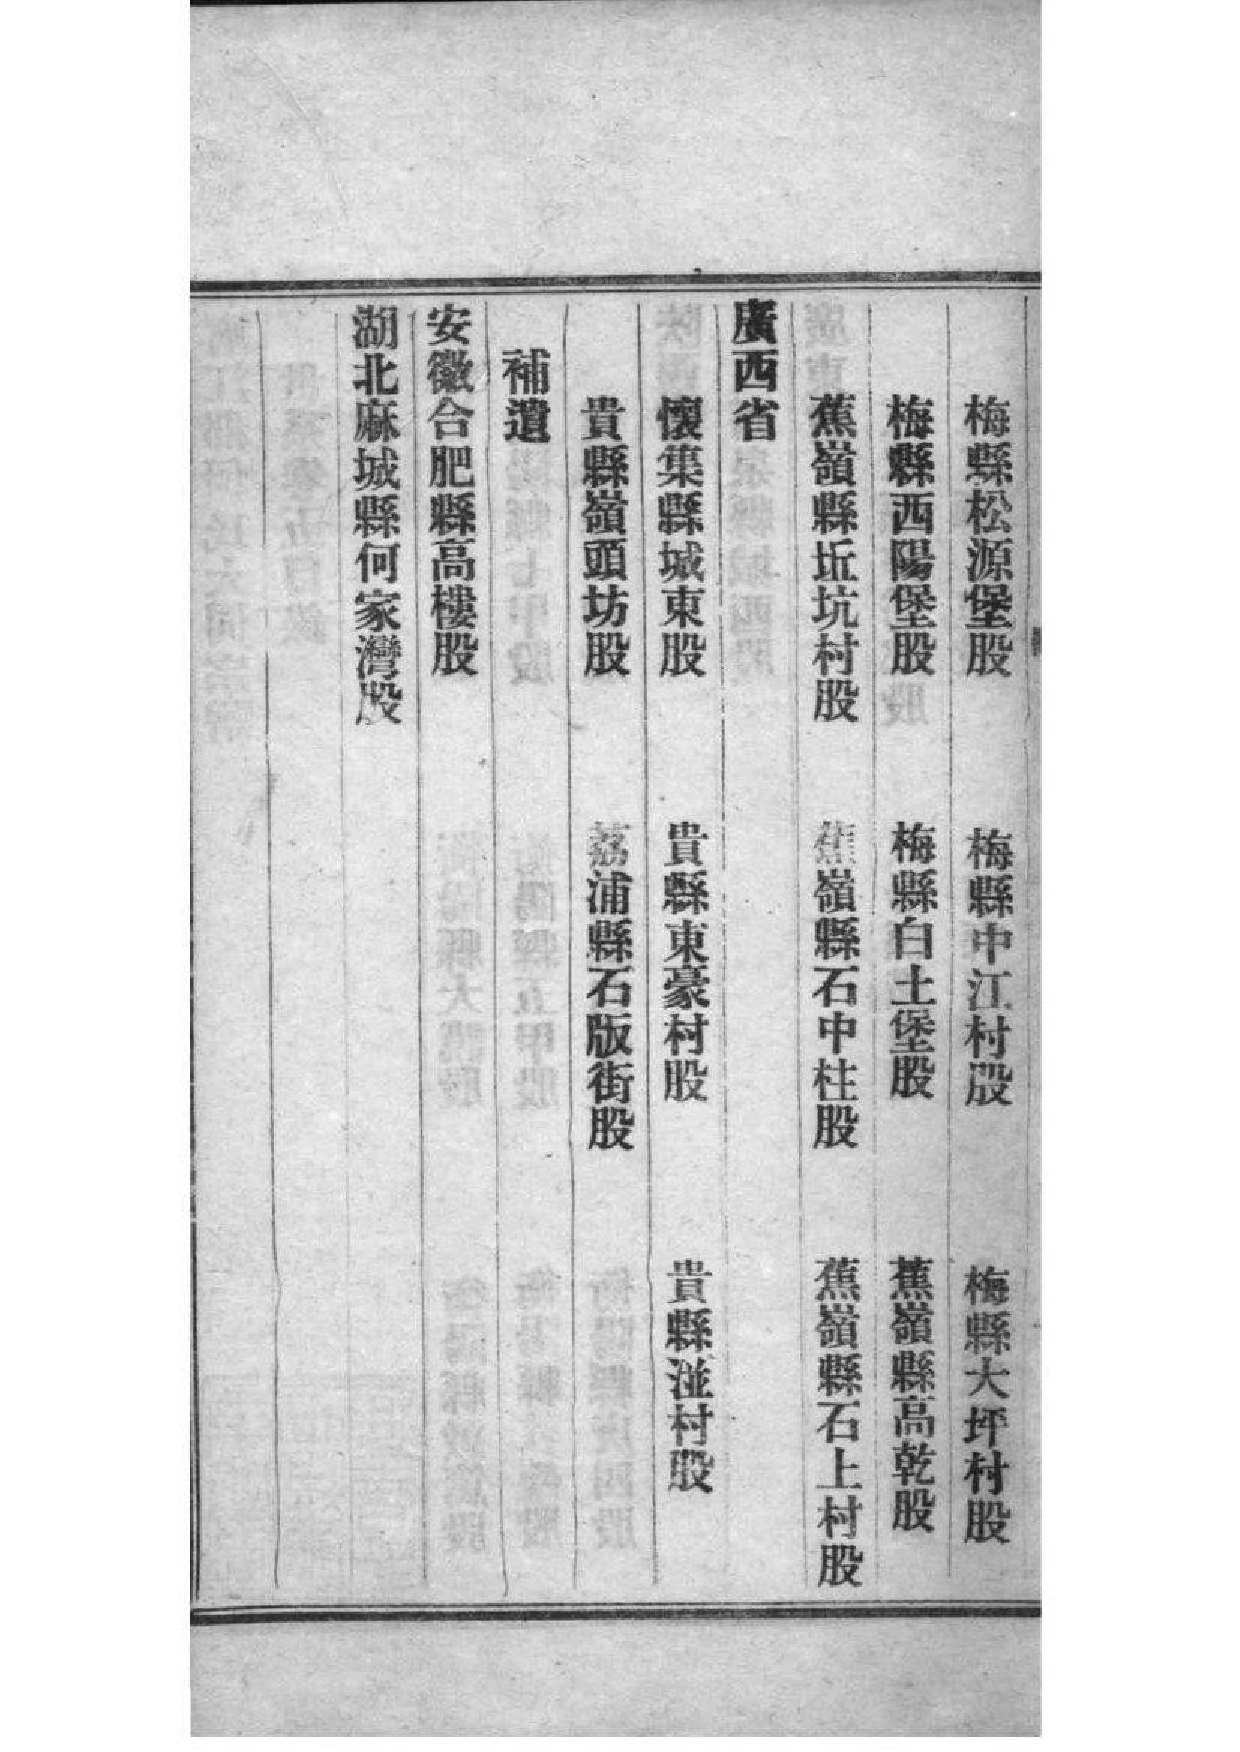 梅縣松源堡股 梅縣中江村股 梅縣大坪村股
梅縣西陽堡股 梅縣白土堡股 蕉嶺縣高乾股
蕉嶺縣坵坑村股 蕉嶺縣石中柱股 蕉嶺縣石上村股
廣西省
懷集縣城東股 貴縣東豪村股 貴縣湴村股
貴縣嶺頭坊股 荔浦縣石版街股
補遺
安徽合肥縣高樓股
湖北麻城縣何家灣股